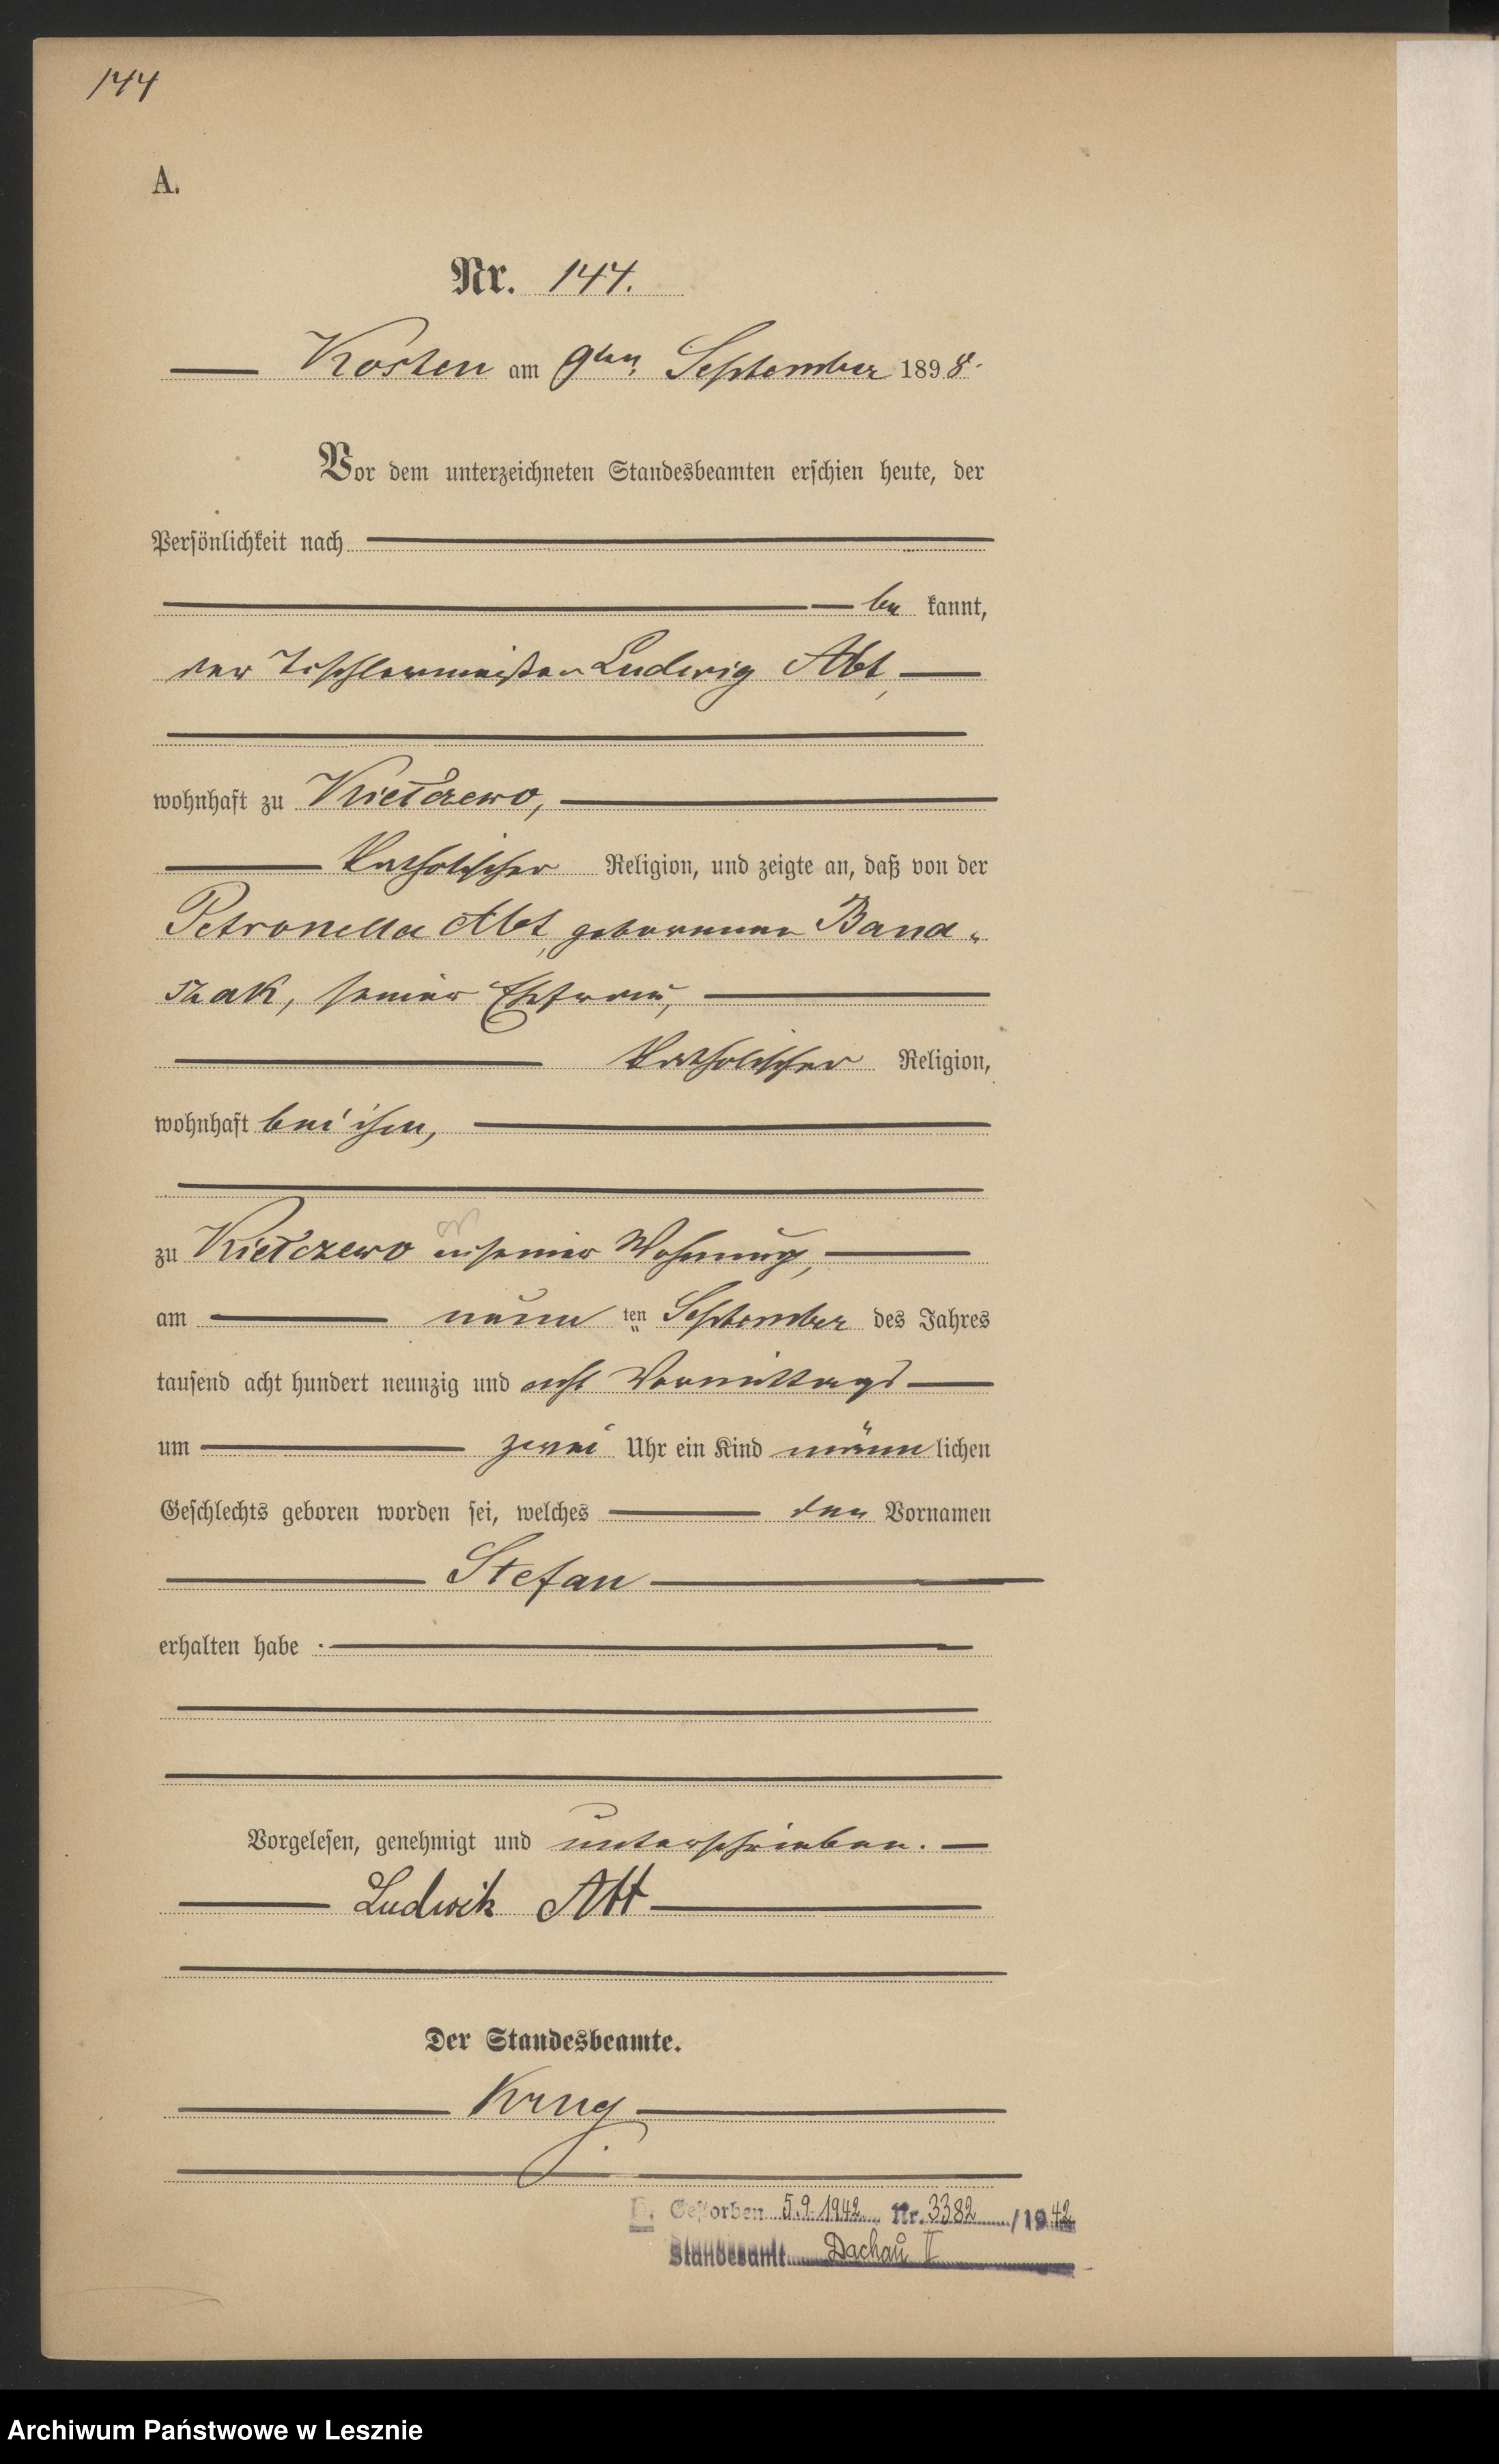 144
A.
Nr. 144.
Kosten am 9ten September 1898.
Vor dem unterzeichneten Standesbeamten erschien heute, der
Persönlichkeit nach
be kannt,
der Tischlermeister Ludwig Abt,
wohnhaft zu Kiełczewo,
katholischer Religion, und zeigte an, daß von der
Petronella Abt, geborenen Bana-
szak, seiner Ehefrau,
katholischer Religion,
wohnhaft bei ihm,
zu Kiełczewo in seiner Wohnung,
am neun ten September des Jahres
tausend acht hundert neunzig und acht Vormittags
um zwei Uhr ein Kind männ lichen
Geschlechts geboren worden sei, welches den Vornamen
Stefan
erhalten habe.
Vorgelesen, genehmigt und unterschrieben.
Ludwik Abt
Der Standesbeamte.
Krug
Gestorben 5.9.1942 Nr. 3382 /1942
Standesamt Dachau II
Archiwum Państwowe w Lesznie